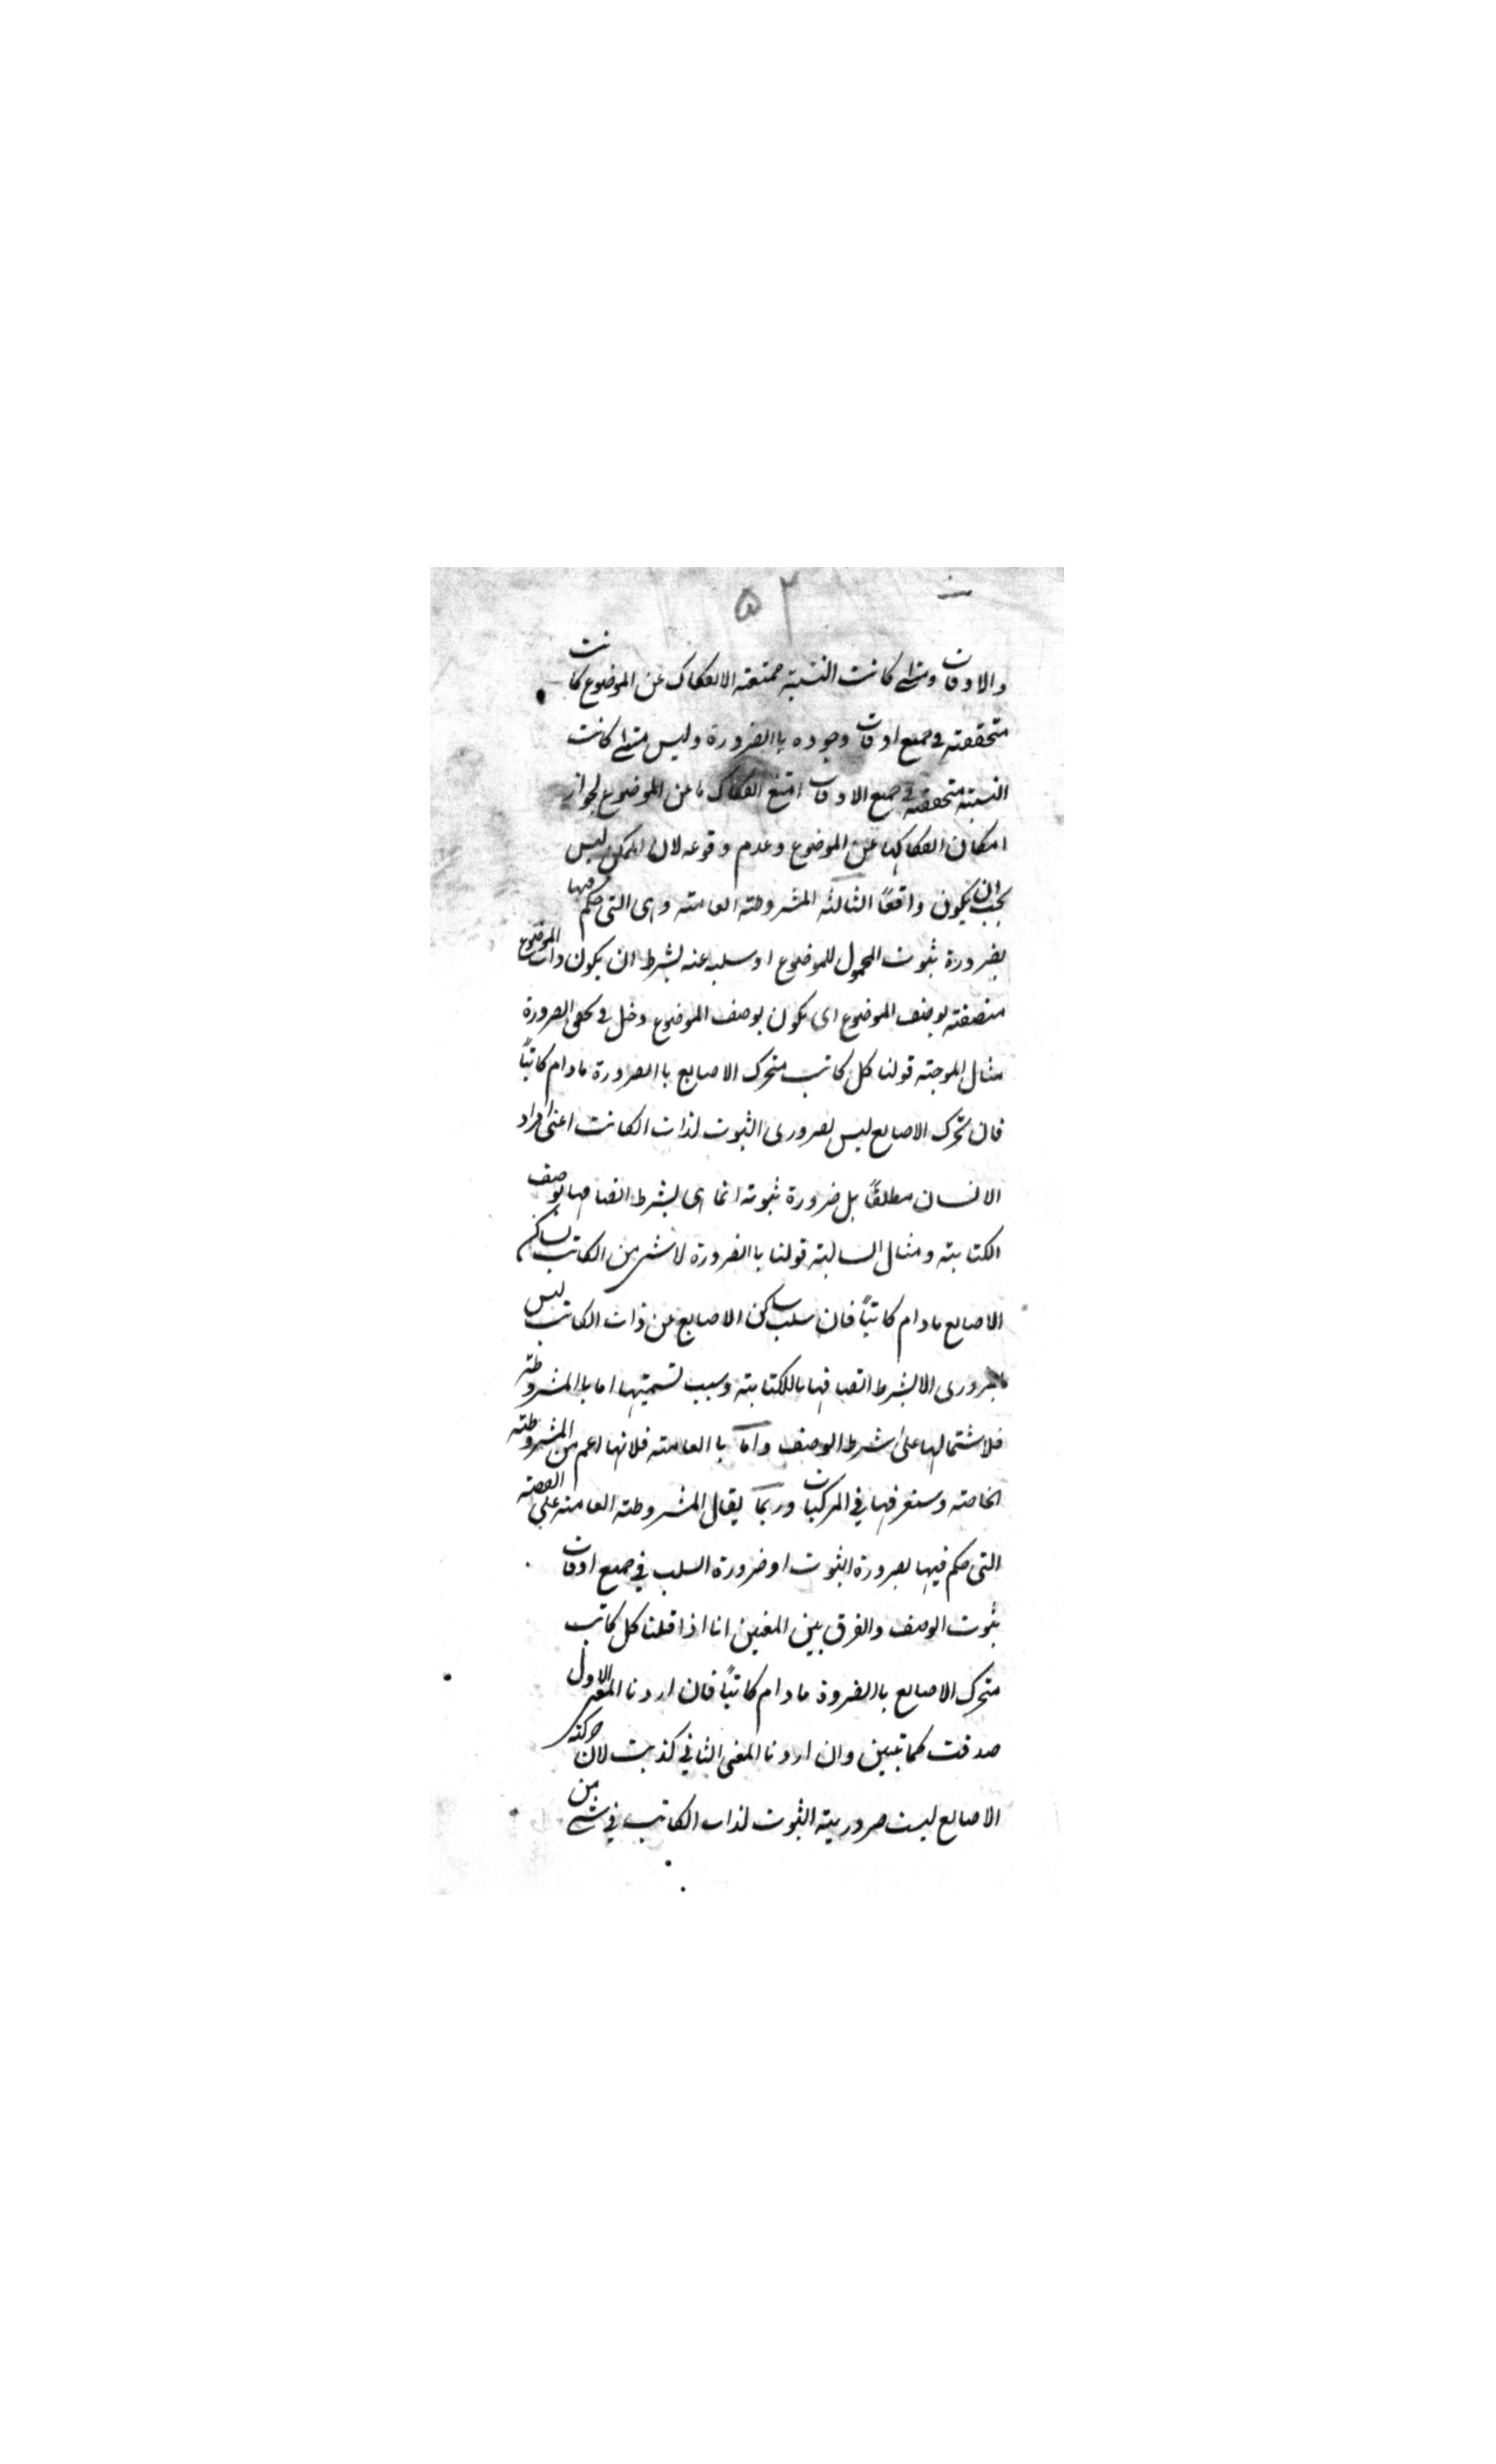 ٥٢
والاوقات ومتى كانت النسبة ممتنعة الانفكاك عن الموضوع كانت
متحققة في جميع اوقات وجوده باالضرورة وليس متى كانت
النسبة متحققة في جميع الاوقات امتنع انفكاكها عن الموضوع لجواز
امكان انفكاكها عن الموضوع وعدم وقوعه لان الممكن ليس
يجب ان يكون واقعًا الثالثة المشروطة العامة وهى التى حكم فيها
بضرورة ثبوت المحمول للموضوع او سلبه عنه بشرط ان يكون ذات الموضوع
متصفة بوصف الموضوع اى يكون بوصف الموضوع دخل في تحقق الضرورة
مثال الموجبة قولنا كل كاتب متحرك الاصابع باالضرورة مادام كاتبًا
فان تحرك الاصابع ليس بضرورى الثبوت لذات الكاتب اعنى افراد
الانسان مطلقًا بل ضرورة ثبوته انما هى بشرط اتصافها بوصف
الكتابة ومثال السالبة قولنا باالضرورة لا شئ من الكاتب بساكن
الاصابع مادام كاتبًا فان سلب ساكن الاصابع عن ذات الكاتب ليس
بضرورى الا بشرط اتصافها باللكتابة وسبب تسميتها اما باالمشروطة
فلاشتمالها على شرط الوصف واما باالعامة فلانها اعم من المشروطة
الخاصة وستعرفها في المركبات وربما يقال المشروطة العامة على القضية
التى حكم فيها بضرورة الثبوت او ضرورة السلب في جميع اوقات
ثبوت الوصف والفرق بين المعنيين انا اذا قلنا كل كاتب
متحرك الاصابع باالضروة مادام كاتبًا فان اردنا المعنى الاول
صدقت كما تبين وان اردنا المعنى الثاني كذبت لان حركة
الاصابع ليست ضرورية الثبوت لذات الكاتب في شئ من